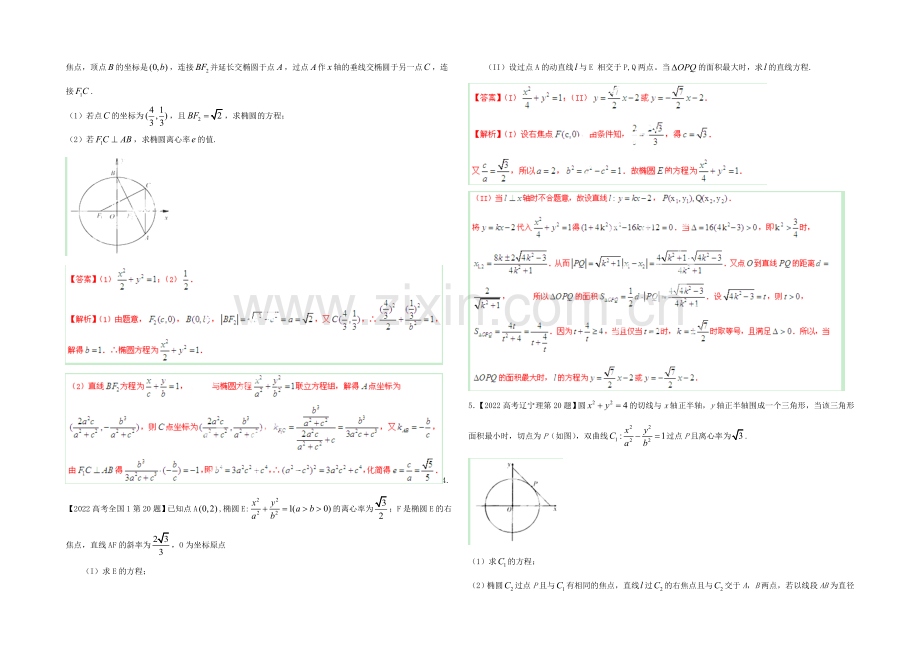 焦点，顶点B的坐标是(0,b)，连接BF₂并延长交椭圆于点A，过点A作x轴的垂线交椭圆于另一点C，连
接F₁C．
（1）若点C的坐标为(4/3,1/3)，且BF₂=√2，求椭圆的方程；
（2）若F₁C⊥AB，求椭圆离心率e的值．
y
B
C
F₁ O F₂ x
A
【答案】(1) x²/2+y²=1；(2) 1/2．
【解析】(1)由题意，F₂(c,0)，B(0,b)，|BF₂|==a=√2，又C(4/3,1/3)，∴(4/3)²/2+(1/3)²/b²=1，
解得b=1．∴椭圆方程为x²/2+y²=1．
(2) 直线BF₂方程为x/c+y/b=1，与椭圆方程x²/a²+y²/b²=1联立方程组，解得A点坐标为
(2a²c/(a²+c²),-b³/(a²+c²))，则C点坐标为(2a²c/(a²+c²),b³/(a²+c²))，k_{F₁C}=(b³/(a²+c²))/(2a²c/(a²+c²)+c)=b³/(3a²c+c³)，又k_{AB}=-b/c，
由F₁C⊥AB得b³/(3a²c+c³)·(-b/c)=-1，即b⁴=3a²c²+c⁴，∴(a²-c²)²=3a²c²+c⁴，化简得e=c/a=√5/5．
4.
【2022高考全国1第20题】已知点A(0,2)，椭圆E:x²/a²+y²/b²=1(a>b>0)的离心率为√3/2；F是椭圆E的右
焦点，直线AF的斜率为2√3/3，O为坐标原点
（I）求E的方程；
（II）设过点A的动直线l与E 相交于P,Q两点。当△OPQ的面积最大时，求l的直线方程.
【答案】(I) x²/4+y²=1；(II) y=√7/2x-2或y=-√7/2x-2．
【解析】(I) 设右焦点F(c,0)，由条件知，2/c=2√3/3，得c=√3．
又c/a=√3/2，所以a=2，b²=a²-c²=1．故椭圆E的方程为x²/4+y²=1．
(II) 当l⊥x轴时不合题意，故设直线l:y=kx-2，P(x₁,y₁),Q(x₂,y₂)．
将y=kx-2代入x²/4+y²=1得(1+4k²)x²-16kx+12=0．当Δ=16(4k²-3)>0，即k²>3/4时，
x₁,₂=(8k±2√(4k²-3))/(4k²+1)．从而|PQ|=√(k²+1)|x₁-x₂|=4√(k²+1)·√(4k²-3)/(4k²+1)．又点O到直线PQ的距离d=
2/√(k²+1)，所以△OPQ的面积S△OPQ=1/2d·|PQ|=4√(4k²-3)/(4k²+1)．设√(4k²-3)=t，则t>0，
S△OPQ=4t/(t²+4)=4/(t+4/t)．因为t+4/t≥4，当且仅当t=2时，k=±√7/2时取等号，且满足Δ>0．所以，当
△OPQ的面积最大时，l的方程为y=√7/2x-2或y=-√7/2x-2．
5.【2022高考辽宁理第20题】圆x²+y²=4的切线与x轴正半轴，y轴正半轴围成一个三角形，当该三角形
面积最小时，切点为P（如图），双曲线C₁:x²/a²-y²/b²=1过点P且离心率为√3.
y
P
O x
（1）求C₁的方程；
（2）椭圆C₂过点P且与C₁有相同的焦点，直线l过C₂的右焦点且与C₂交于A，B两点，若以线段AB为直径
www.zixin.com.cn